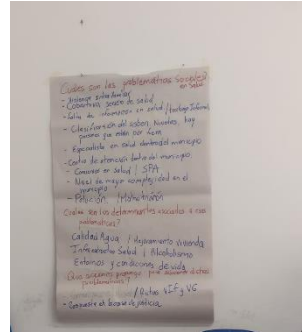 Cuales son las problematicas Sociales
en Salud
- intrafamiliar
- Cobertura de salud
- Falta de informacion en salud /
- Clasificación del sisben. Niveles, hay
personas que están por fuera
- Especialista en salud dentro del municipio
- Centro de atención dentro del municipio
- en salud / SPA
- Nivel de mayor complejidad en el
municipio
- Polución /
Cuales son los determinantes asociados a esas
problematicas?
Calidad Agua / Mejoramiento vivienda
Infraestructura Salud / Alcoholismo
Entornos y condiciones de vida
Que acciones para
problematicas?
/ Rutas VIF y VG
-